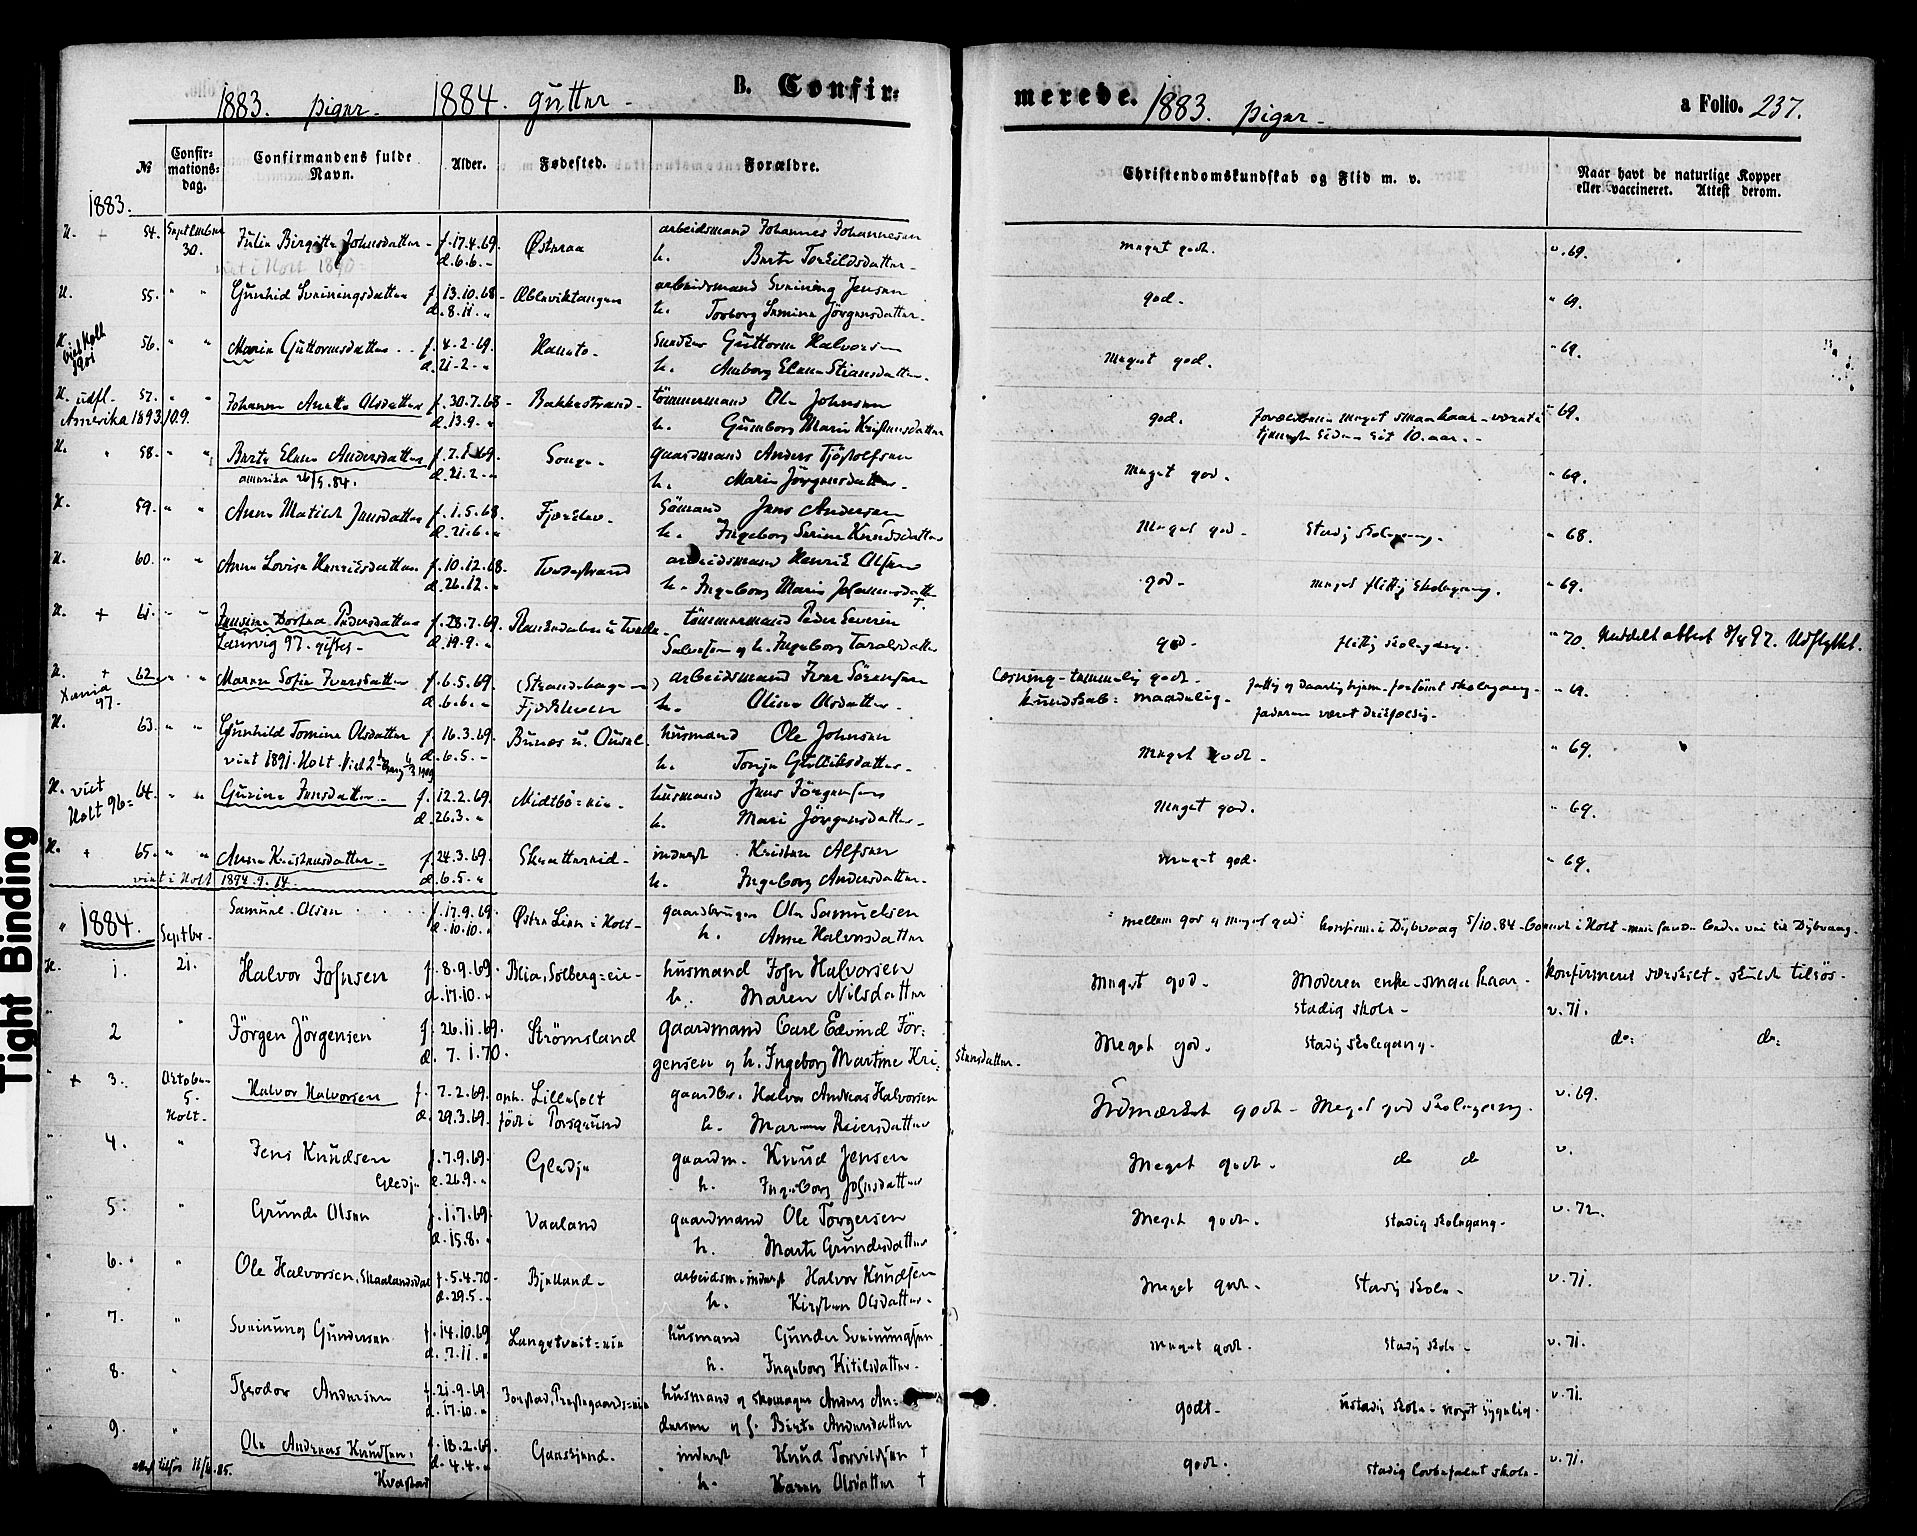 1883. piger. 1884. gutter - B. Confir:
№ Confir:mations:dag. Confirmandens fulde Navn. Alder. Fødested. Forældre.
1883.
54. September 30. Julie Birgitte Johnsdatter - f. 17.4.69. Østeraa arbeidsmand Johannes Johannesen
viet i Holt 1890 d. 6.6. - h. Berte Torkildsdatter.
55. " " Gunhild Sveiningsdatter f. 13.10.68 - Æbleviktangen arbeidsmand Sveining Jensen
d. 8.11. " h. Torborg Samine Jörgensdatter.
56. " " Maria Guttormsdatter f. 4.2.69. Hanto. Guttorm Halvorsen
viet Holt 1901 d. 21.2. " h. Amborg Elena Stiansdatter.
N. udfl. 57. " " Johanne Anette Olsdatter f. 30.7.68 - Bakkestrand - tömmermand Ole Johnsen
Amerika 1893.10.9. d. 13.9. " h. Gunborg Marie Kristensdatter
58. " " Berte Elene Andersdatter f. 7. .69. Songe. gaardmand Anders Tjöstolfsen
amerika 26/5.84. d. 21.2. " h. Marie Jörgensdatter.
59. " " Anne Matilde Jensdatter f. 1.5.68. Sömand Jens Andersen
d. 21.6. " h. Ingeborg Serine Knudsdatter
60. " " Anne Lovise Henriksdatter f. 10.12.68. Tvedestrand arbeidsmand Henrik Olsen
d. 26.12. " h. Ingeborg Marie Johannesdatter †
+ 61. Jensine Dorthea Pedersdatter f. 28.7.69. tömmermand Peder Severin
Laurvig 97. giftes - d. 19.9. " Salvesen og h. Ingeborg Taraldsdatter
+ 62. " " Maren Sofie Iversdatter f. 6.5.69. (Strandebagen) arbeidsmand Iver Sörensen
Xania 97. d. 6.6. " Fjærkleven h. Oline Olsdatter.
63. " " Gunhild Tomine Olsdatter f. 16.3.69. husmand Ole Johnsen
viet 1891. Holt. Viet 2den Gang d. 6.5. - h. Tonje Gulleiksdatter.
N. viet 64. " " Gurine Jensdatter - f. 12.2.69. Midtbö=eie - husmand Jens Jörgensen
Holt 96 = d. 26.3. " h. Mari Jörgensdatter.
+ 65. " " Anna Kristensdatter - f. 24.3.69. Skrattereid - inderst Kristen Alfsen
viet i Holt 1894.9.14. d. 6.5. " h. Ingeborg Andersdatter.
" 1884. Septbr. Samuel Olsen f. 17.9.69. Østre Lien i Holt - gaardbruger Ole Samuelsen
d. 10.10. " h. Anne Halvorsdatter
1. 21. Halvor Johnsen f. 8.9.69. Blia, Solberg=eie - husmand John Halvorsen
d. 17.10. " h. Maren Nilsdatter
2 " Jörgen Jörgensen f. 26.11.69. Strömsland gaardmand Carl Edvind Jör:
d. 7.1.70. gensen og h. Ingeborg Martine Kri: stensdatter.
+ 3. October 5. Holt. Halvor Halvorsen f. 7.2.69. oph. Lilleholt gaardbr. Halvor Andreas Halvorsen
d. 29.3.69 född i Porsgrund h. Maren Reiersdatter
4. " Jens Knudsen f. 7.9.69. Gledje gaardm. Knud Jensen
Gledje d. 26.9. " h. Ingeborg Johnsdatter
5. " Grunde Olsen f. 1.7.69. Vaaland gaardmand Ole Torgersen
d. 15.8. " h. Marte Grundesdatter
6. " Ole Halvorsen, Skaalandsdal f. 5.4.70. Bjelland - arbeidsm. inderst Halvor Knudsen
d. 29.5. " h. Kirsten Olsdatter.
7. " Sveinung Gundersen f. 14.10.69. Langetveit=eie husmand Gunder Sveinungsen
d. 7.11. " h. Ingeborg Kitilsdatter.
8. " Theodor Andersen f. 21.9.69. Jorstad, Prestegaards=eie husmand og skomager Anders An:
d. 17.10. " dersen og h. Birte Andersdatter
9. " Ole Andreas Knudsen. f. 18.2.69. Gaaslund. inderst Knud Torvildsen †
Kvastad d. 4.4. " h. Karen Olsdatter †
merede. 1883. piger. a Folio. 237.
Christendomskundskab og Flid m. v. Naar havt de naturlige Kopper eller vaccineret. Attest derom.
meget godt. v. 69.
god. " 69.
Meget god. " 69.
god. Forældrene meget smaa kaar - været i " 69.
tjeneste siden sit 10. aar. -
Meget god. " 69.
Meget god. Stadig skolegang. " 68.
god. meget flittig skolegang. " 69.
god. flittig skolegang. " 70. Meddelt attest 8/4 97. Udflyttet.
Læsning - temmelig godt. fattig og daarlig hjem. forsömt skolegang. " 69.
kundskab: maadelig. faderen været drikfældig.
Meget godt. " 69.
Meget god. " 69.
meget god. " 69.
mellem god og meget god: konfirm. i Dybvaag 5/10.84 -
Meget god. Moderen enke - smaa kaar. konfirmeret særskilt - skulde tilsös.
stadig skole - v. 71.
Meget god. Stadig skolegang. do: do:
Udmærket godt - Meget god skolegang. v. 69.
Meget godt. do do v.
Meget godt. stadig skolegang. v. 72.
Meget godt. Stadig skole - v. 71.
meget godt. Stadig skole - v. 71.
godt. ustadig skole - noget sygelig. v. 71.
godt. stadig lovbefalet skole - v. 71.
Tight Binding